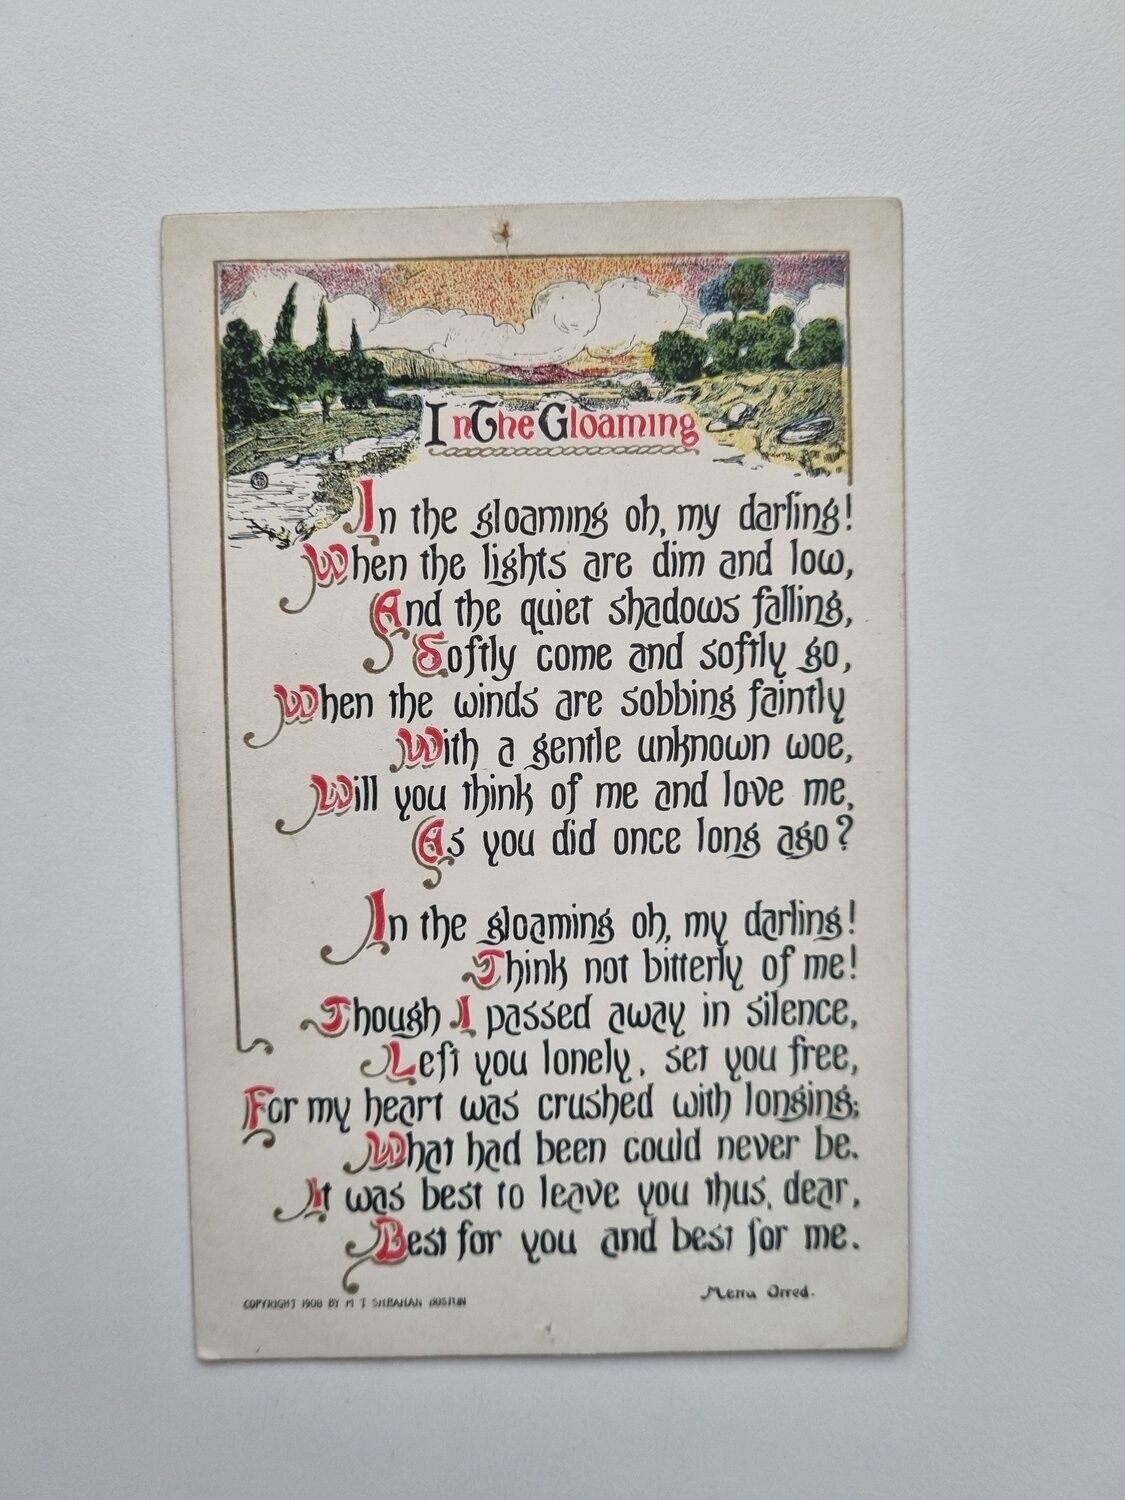 In The Gloaming
In the gloaming oh, my darling!
When the lights are dim and low,
And the quiet shadows falling,
Softly come and softly go,
When the winds are sobbing faintly
With a gentle unknown woe,
Will you think of me and love me,
As you did once long ago?
In the gloaming oh, my darling!
Think not bitterly of me!
Though I passed away in silence,
Left you lonely, set you free,
For my heart was crushed with longing;
What had been could never be.
It was best to leave you thus, dear,
Best for you and best for me.
Meta Orred.
COPYRIGHT 1908 BY M T SHEAHAN BOSTON